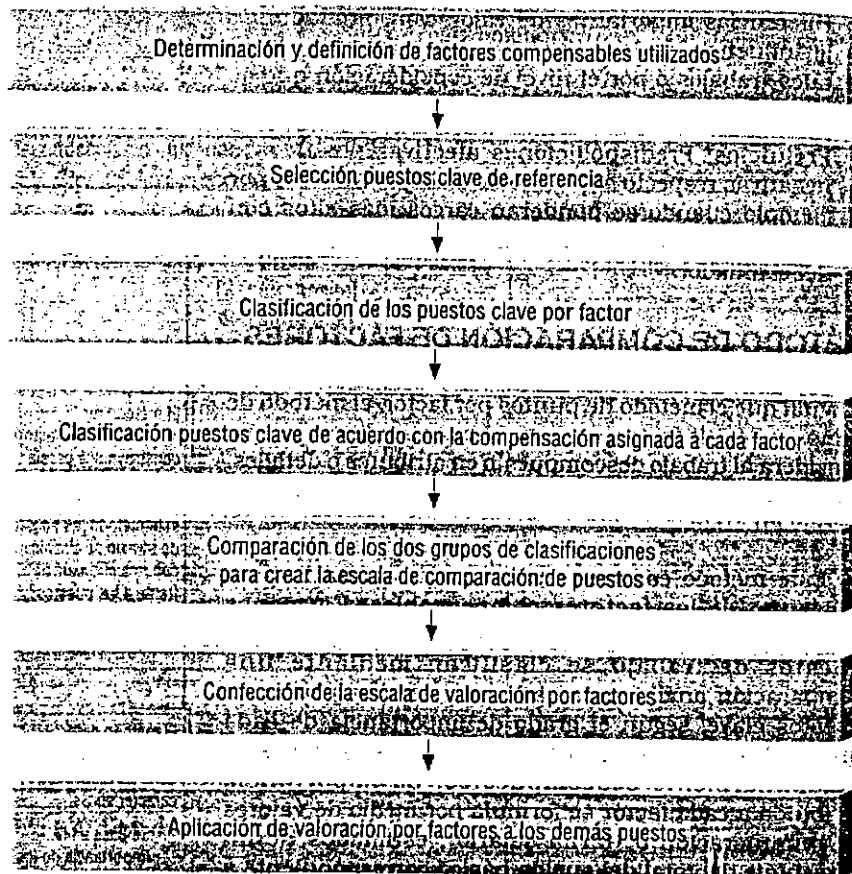 Determinación y definición de factores compensables utilizados
Selección puestos clave de referencia
Clasificación de los puestos clave por factor
Clasificación puestos clave de acuerdo con la compensación asignada a cada factor
Comparación de los dos grupos de clasificaciones
para crear la escala de comparación de puestos
Confección de la escala de valoración por factores
Aplicación de valoración por factores a los demás puestos